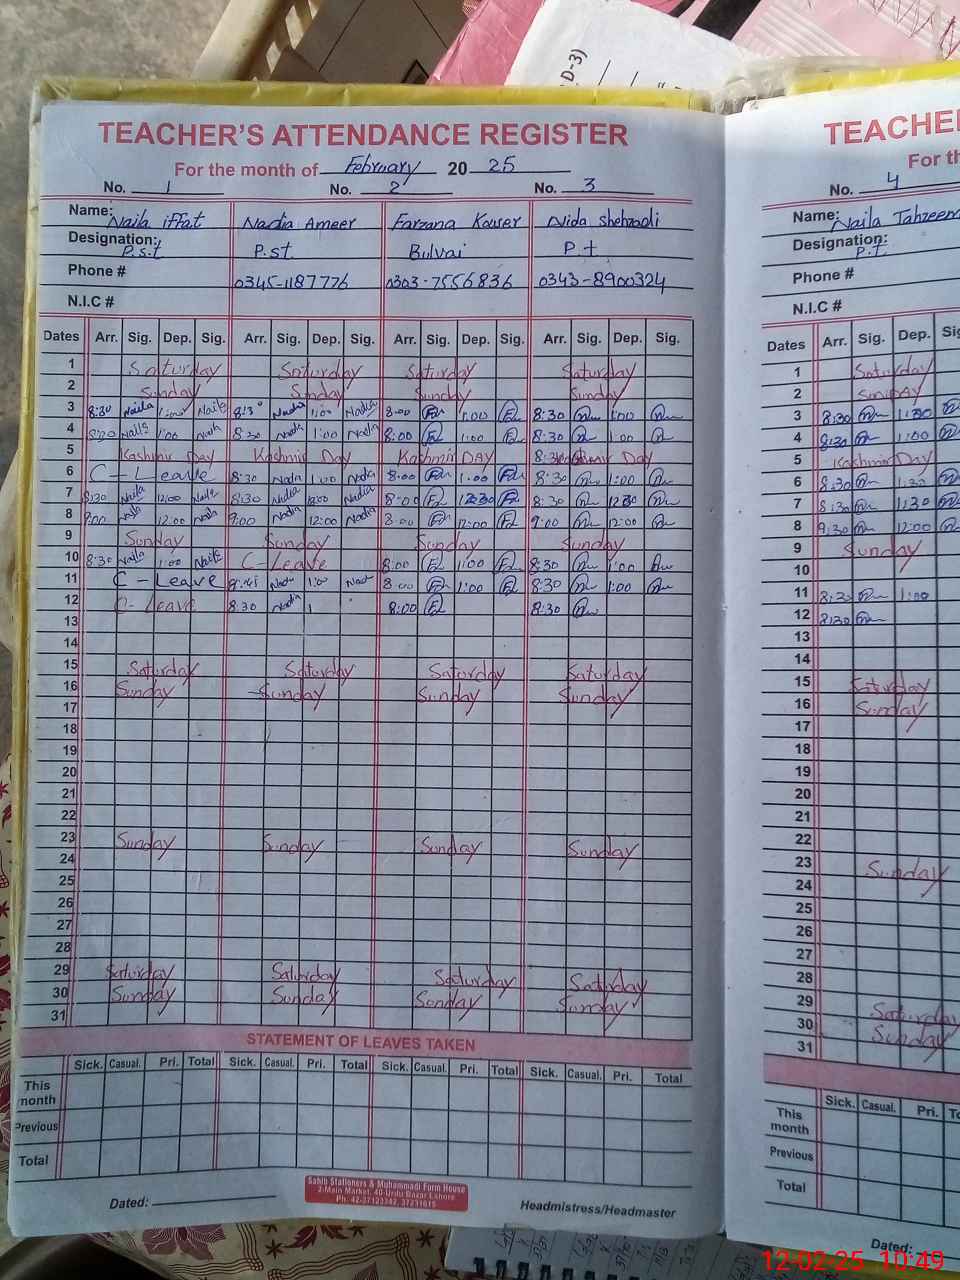 D-3)
TEACHER'S ATTENDANCE REGISTER
For the month of February 20 25
No. 1 No. 2 No. 3
Name: Naila iffat Nadia Ameer Farzana Kouser Nida Shehzadi
Designation: P.s.t P.st. Bulvai P.t
Phone # 0345-1187776 0303-7556836 0343-8900324
N.I.C #
Dates Arr. Sig. Dep. Sig. Arr. Sig. Dep. Sig. Arr. Sig. Dep. Sig. Arr. Sig. Dep. Sig.
1 Saturday Saturday Saturday Saturday
2 Sunday Sunday Sunday Sunday
3 8:30 Naila 1:00 Naila 8:30 Nadia 1:00 Nadia 8:00 1:00 8:30 1:00
4 8:30 Naila 1:00 Naila 8:30 Nadia 1:00 Nadia 8:00 1:00 8:30 1:00
5 Kashmir Day Kashmir Day Kashmir DAY Kashmir Day
6 C-Leave 8:30 Nadia 1:00 Nadia 8:00 1:00 8:30 1:00
7 8:30 Naila 12:00 Naila 8:30 Nadia 12:00 Nadia 8:00 12:30 8:30 12:30
8 9:00 Naila 12:00 Naila 9:00 Nadia 12:00 Nadia 8:00 12:00 9:00 12:00
9 Sunday Sunday Sunday Sunday
10 8:30 Naila 1:00 Naila C-Leave 8:00 1:00 8:30 1:00
11 C-Leave 8:45 Nadia 1:00 8:00 1:00 8:30 1:00
12 C-Leave 8:30 Nadia 1 8:00 8:30
13
14
15 Saturday Saturday Saturday Saturday
16 Sunday Sunday Sunday Sunday
17
18
19
20
21
22
23 Sunday Sunday Sunday Sunday
24
25
26
27
28
29 Saturday Saturday Saturday Saturday
30 Sunday Sunday Sunday Sunday
31
STATEMENT OF LEAVES TAKEN
Sick. Casual. Pri. Total Sick. Casual. Pri. Total Sick. Casual. Pri. Total Sick. Casual. Pri. Total
This month
Previous
Total
Dated:
Sahib Stationers & Muhammadi Form House
2-Main Market, 40-Urdu Bazar Lahore
Ph: 42-37123342, 37231615
Headmistress/Headmaster
TEACHE
For th
No. 4
Name: Naila Tahzeem
Designation: P.t.
Phone #
N.I.C #
Dates Arr. Sig. Dep. Sig
1 Saturday
2 Sunday
3 8:30 1:30
4 8:30 1:00
5 Kashmir Day
6 8:30 1:30
7 8:30 1:30
8 9:30 12:00
9 Sunday
10
11 8:30 1:00
12 8:30
13
14
15 Saturday
16 Sunday
17
18
19
20
21
22
23 Sunday
24
25
26
27
28
29 Saturday
30 Sunday
31
Sick. Casual. Pri. To
This month
Previous
Total
Dated:
12-02-25 10:49